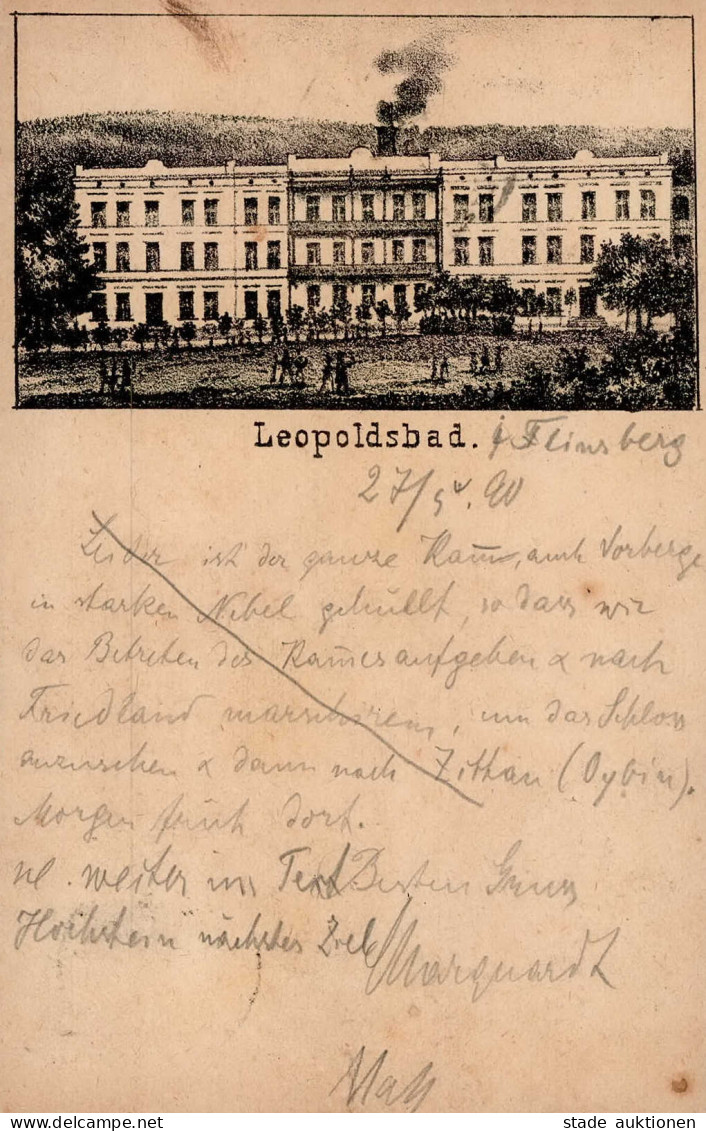 Leopoldsbad. Flinsberg
27/5 90
Leider ist der ganze Kam̅, auch Vorberge
in starken Nebel gehüllt, so dass wir
das Betreten des Kam̅es aufgeben & nach
Friedland marschiren, um das Schloss
anzusehen & dann nach Zittau (Oybin).
Morgen früh dort.
weiter im Text Besten Gruss
Hochstein nächstes Ziel
Marquardt
stade auktionen